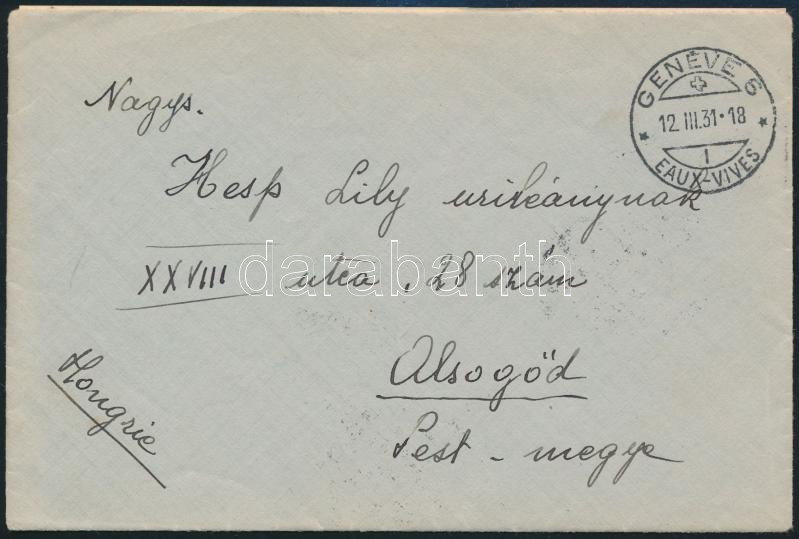 GENÈVE 6
12.III.31·18
1
EAUX-VIVES
Nagys.
Hesp Lily urileánynak
XXVIII utca. 28 szám
Alsogöd
Pest - megye
Hongrie
darabanth